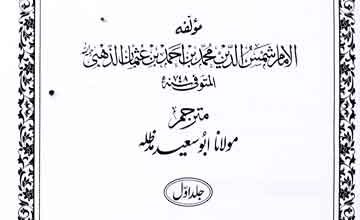 مؤلفه
الامام شمس الدين محمد بن احمد بن عثمان الذهبي رحمہ اللہ
المتوفى سنہ ۷۴۸ھ
مترجم
مولانا ابو سعید مدظلہ
جلد اوّل